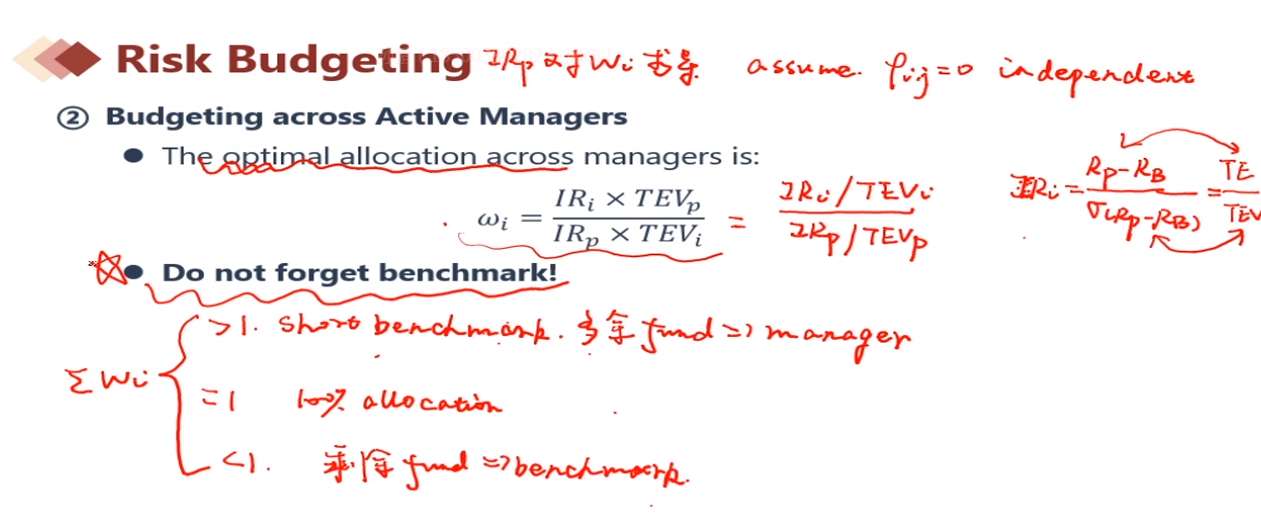 Risk Budgeting IRp 对 Wi 求导 assume. ρij=0 independent
② Budgeting across Active Managers
● The optimal allocation across managers is:
ωi = (IRi × TEVp) / (IRp × TEVi) = (IRi/TEVi) / (IRp/TEVp)
IRi = (Rp-RB) / σ(Rp-RB) = TE / TEV
● Do not forget benchmark!
>1. short benchmark. 多余 fund => manager
ΣWi
=1 100% allocation
<1. 剩余 fund => benchmark.